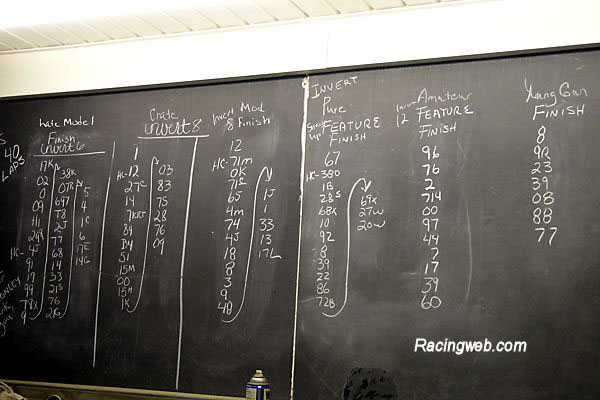 40
LAPS
Late Model
Finish
invert 6
17K
02
8
09
H1
HC-
38K
07R
697
T8
25
77
68
14
33
21S
76
2RS
5
4
1C
6
14G
Crate
invert 8
1
HC-12
27C
14
7KLT
89
B4
51
15M
00
15H
1K
03
83
75
28
76
09
Invert Mod
8 Finish
12
HC-71m
0K
71C
65
4m
74
4J
18
8
3
9
48
1J
1
33
13
17L
INVERT
P
Pure
FEATURE
FINISH
67
HC-380
1B
28S
68X
10
92
8
39
22
86
72B
69X
27W
20W
Invert Amateur
12 FEATURE
FINISH
96
76
2
714
00
97
44
7
17
39
60
Young Gun
FINISH
8
9R
23
39
08
88
77
Racingweb.com